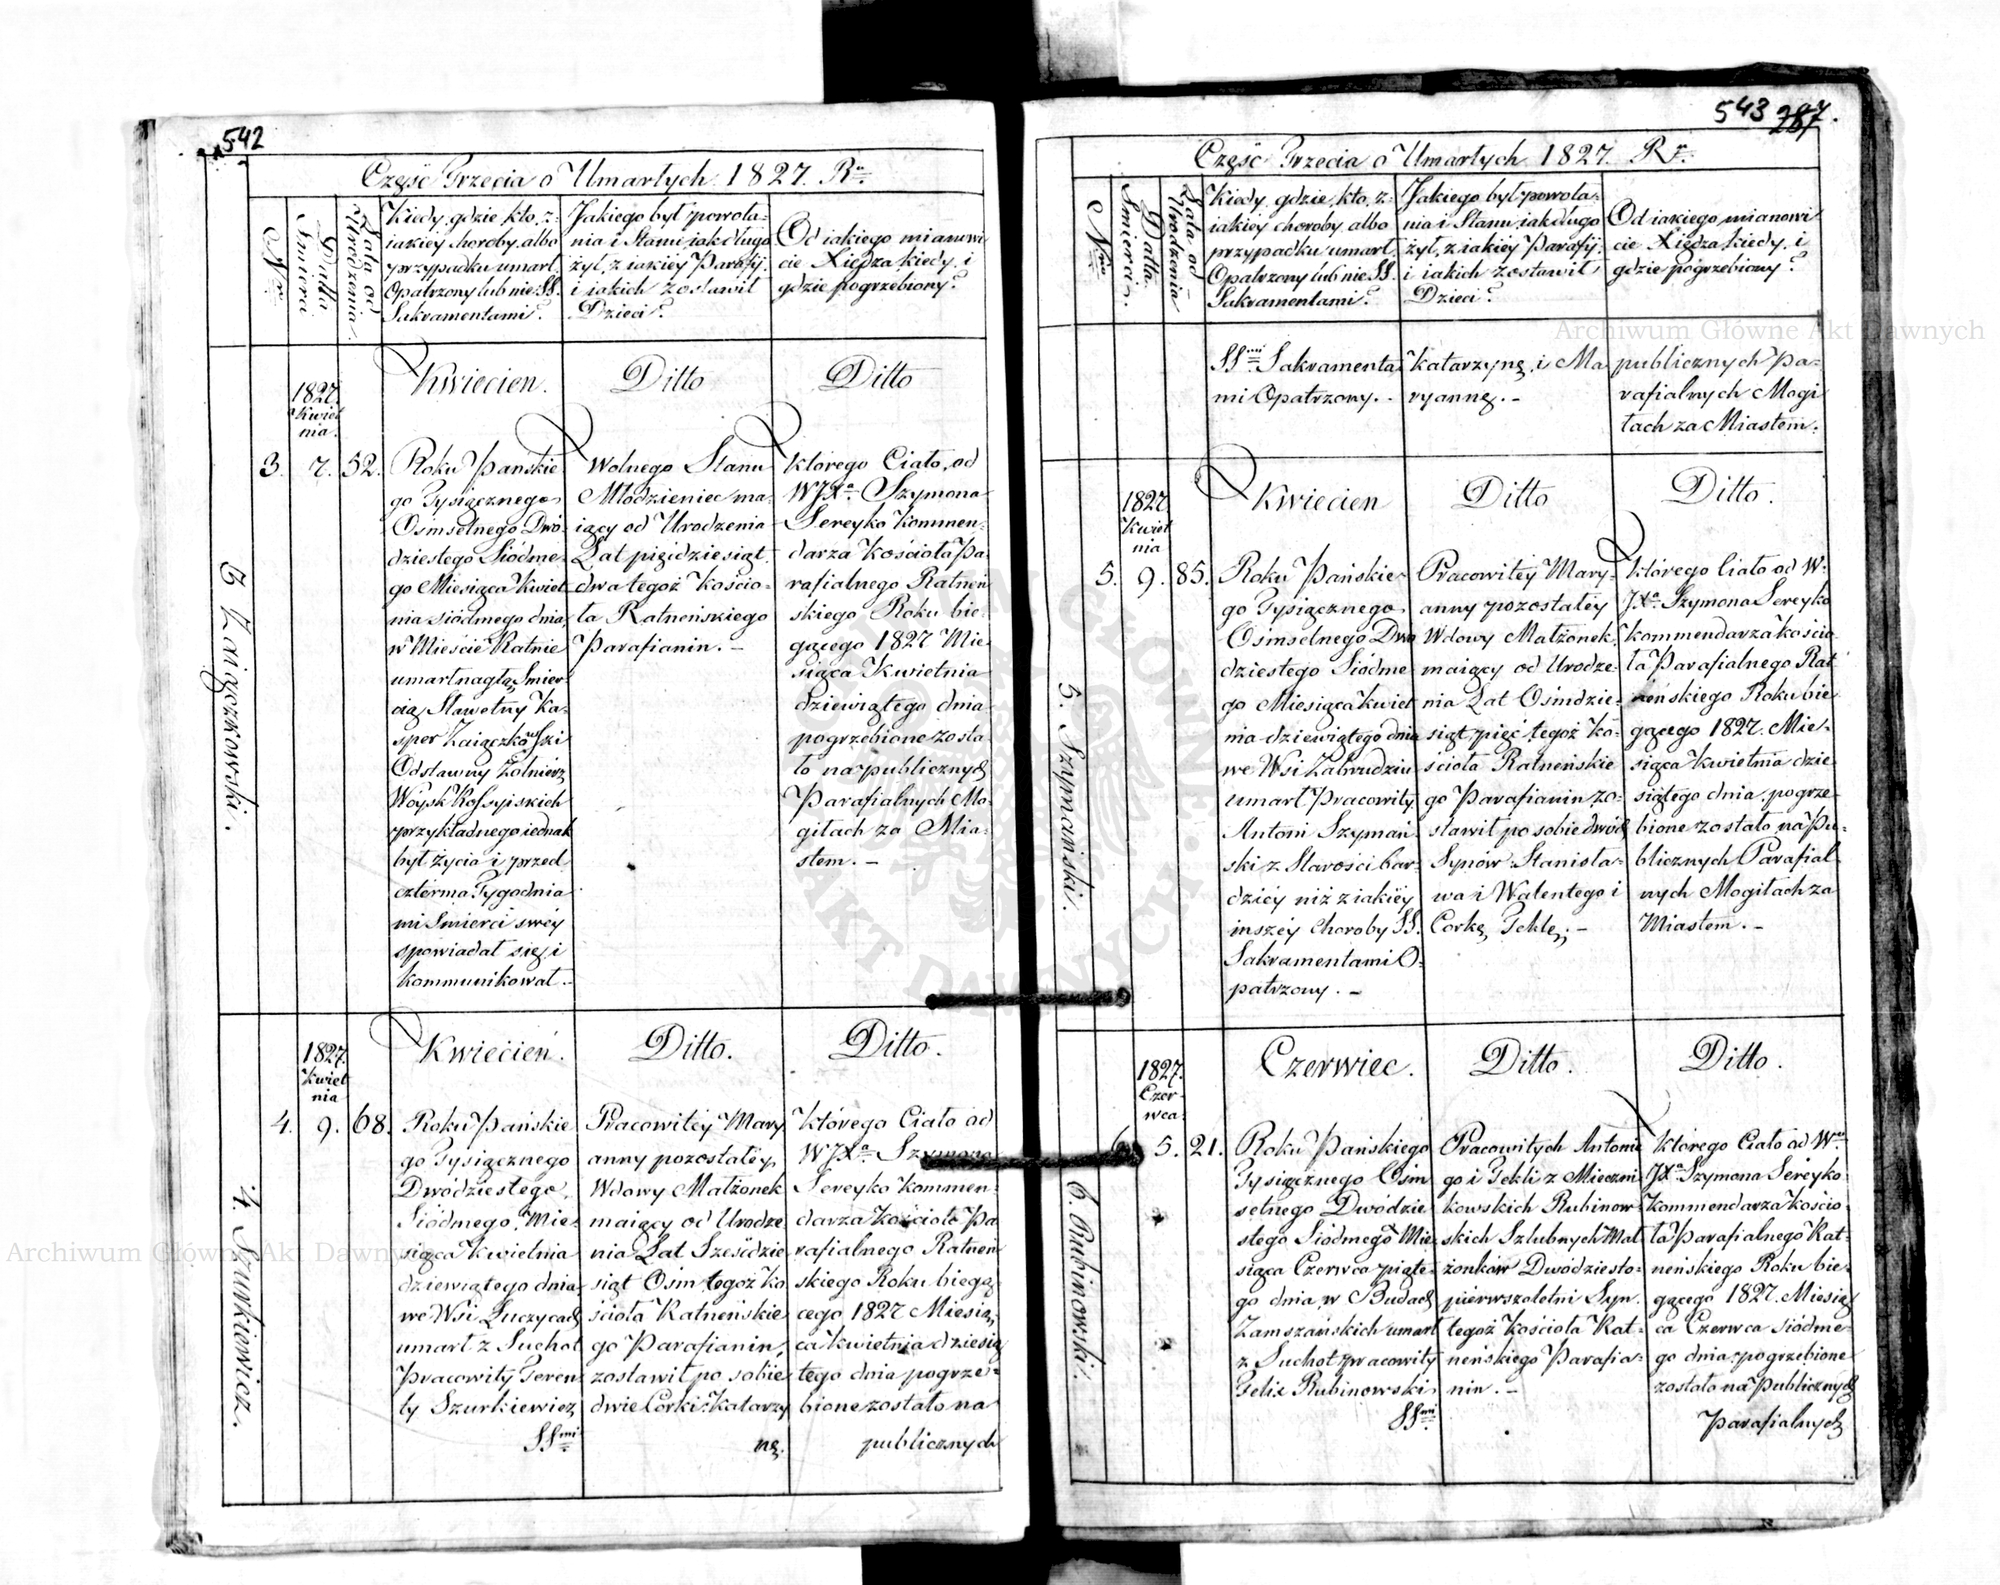 542
Część Trzecia o Umarłych 1827. Ra.
Nr.
Datta Smierci
Lata od Urodzenia
Kiedy, gdzie, kto, z
iakiey choroby, albo
przypadku umarł,
Opatrzony lub nie SS.
Sakramentami?
Jakiego był powoła-
nia i Stanu, iak długo
żył, z iakiey Parafij.
i iakich zostawił
Dzieci?
Od iakiego mianowi
cie Xiędza, kiedy, i
gdzie pogrzebiony?
3 Zaiączkowski.
1827.
Kwiet
nia.
3. 7. 52.
Kwiecien.
Roku Pańskie
go Tysiącznego
Osmsetnego Dwó-
dziestego Siódme-
go Miesiąca Kwiet
nia siódmego dnia,
w Mieście Ratnie
umarł nagłą Smier
cią Sławetny Ka-
sper Zaiączkowski
Odstawny Żołnierz
Woysk Rossyiskich
przykładnego iednak
był życia i przed
czterma Tygodnia
mi Smierci swey
spowiadał się, i
kommunikował. -
Ditto
Wolnego Stanu
Młodzieniec ma-
iący od Urodzenia
Lat pięidziesiąt
dwa tegoż Kościo-
ła Ratneńskiego
Parafianin. -
Ditto
którego Ciało, od
WJXa. Szymona
Sereyko Kommen-
darza Kościoła Pa-
rafialnego Ratneń
skiego Roku bie-
gącego 1827 Mie-
siąca Kwietnia
dziewiątego dnia
pogrzebione zosta
ło na publicznych
Parafialnych Mo-
giłach za Mia-
stem. -
4. Szurkiewicz.
1827.
Kwiet
nia
4. 9. 68.
Kwiecień.
Roku Pańskie
go Tysiącznego
Dwódziestego
Siódmego, Mie-
siąca Kwietnia
dziewiątego dnia
we Wsi Łuczycach
umarł z Suchot
Pracowity Teren
ty Szurkiewicz
SSmi
Ditto.
Pracowitéy Mary
anny pozostałéy
Wdowy Małżonek
maiący od Urodze
nia Lat Sześćdzie
siąt Ośm tegoż Ko
ścioła Ratneńskie
go Parafianin,
zostawił po sobie
dwie Corki: Katarzy
nę.
Ditto.
którego Ciało od
WJXa. Szymona
Sereyko Kommen-
darza Kościoła Pa
rafialnego Ratneń
skiego Roku biegą-
cego 1827 Miesią-
ca Kwietnia dziesią
tego dnia pogrze-
bione zostało na
publicznych
543 287.
Część Trzecia o Umarłych 1827. Rr.
Nro
Datta. Smierci.
Lata od Urodzenia
Kiedy, gdzie, kto, z-
iakiéy choroby, albo
przypadku umarł.
Opatrzony lub nie SS.
Sakramentami?
Jakiego był powoła-
nia i Stanu, iak długo
żył, z iakiéy Parafij.
i iakich zostawił
Dzieci?
Od iakiego mianowi
cie Xiędza, kiedy, i
gdzie pogrzebiony?
SSmi Sakramenta
mi Opatrzony. -
Katarzynę, i Ma
ryannę. -
publicznych Pa-
rafialnych Mogi
łach za Miastem.
5. Szymański.
1827.
Kwiet
nia
5. 9. 85.
Kwiecien
Roku Pańskie
go Tysiącznego
Ośmsetnego Dwa
dziestego Siódme
go Miesiąca Kwiet
nia dziewiątego dnia
we Wsi Zabrudziu
umarł Pracowity
Antoni Szymań-
ski z Starości bar-
dziéy niż z iakiéy
inszéy Choroby SS.
Sakramentami O-
patrzony. -
Ditto
Pracowitéy Mary-
anny pozostałéy
Wdowy Małżonek,
maiący od Urodze-
nia Lat Ośmdzie-
siąt pięć tegoż Ko-
ścioła Ratneńskie
go Parafianin zo-
stawił po sobie dwóch
Synów Stanisła-
wa i Walentego i
Corkę Teklę. -
Ditto.
którego Ciało od W.
JXa. Szymona Sereyko
Kommendarza Kościo
ła Parafialnego Rat
neńskiego Roku bie
gącego 1827. Mie-
siąca Kwietnia dzie
siątego dnia, pogrze
bione zostało na Pu-
blicznych Parafial-
nych Mogiłach za
Miastem. -
6. Rubinowski.
1827.
Czer-
wca.
6. 5. 21.
Czerwiec.
Roku Pańskiego
Tysiącznego Osm
setnego Dwódzie
stego Siódmego Mie
siąca Czerwca piąte-
go dnia, w Budach
Zamszańskich umarł
z Suchot pracowity
Felix Rubinowski
SSmi
Ditto.
Pracowitych Antonie
go i Tekli z Mieczni
kowskich Rubinow
skich Szlubnych Mał
żonków Dwódziesto-
pierwszoletni Syn.
tegoż Kościoła Rat-
neńskiego Parafia-
nin. -
Ditto.
którego Ciało od Wo
JXa. Szymona Sereyko
Kommendarza Kościo
ła Parafialnego Rat-
neńskiego Roku bie
gącego 1827. Miesią
ca Czerwca siódme-
go dnia pogrzebione
zostało na Publicznych
Parafialnych
Archiwum Główne Akt Dawnych
Archiwum Główne Akt Dawnych